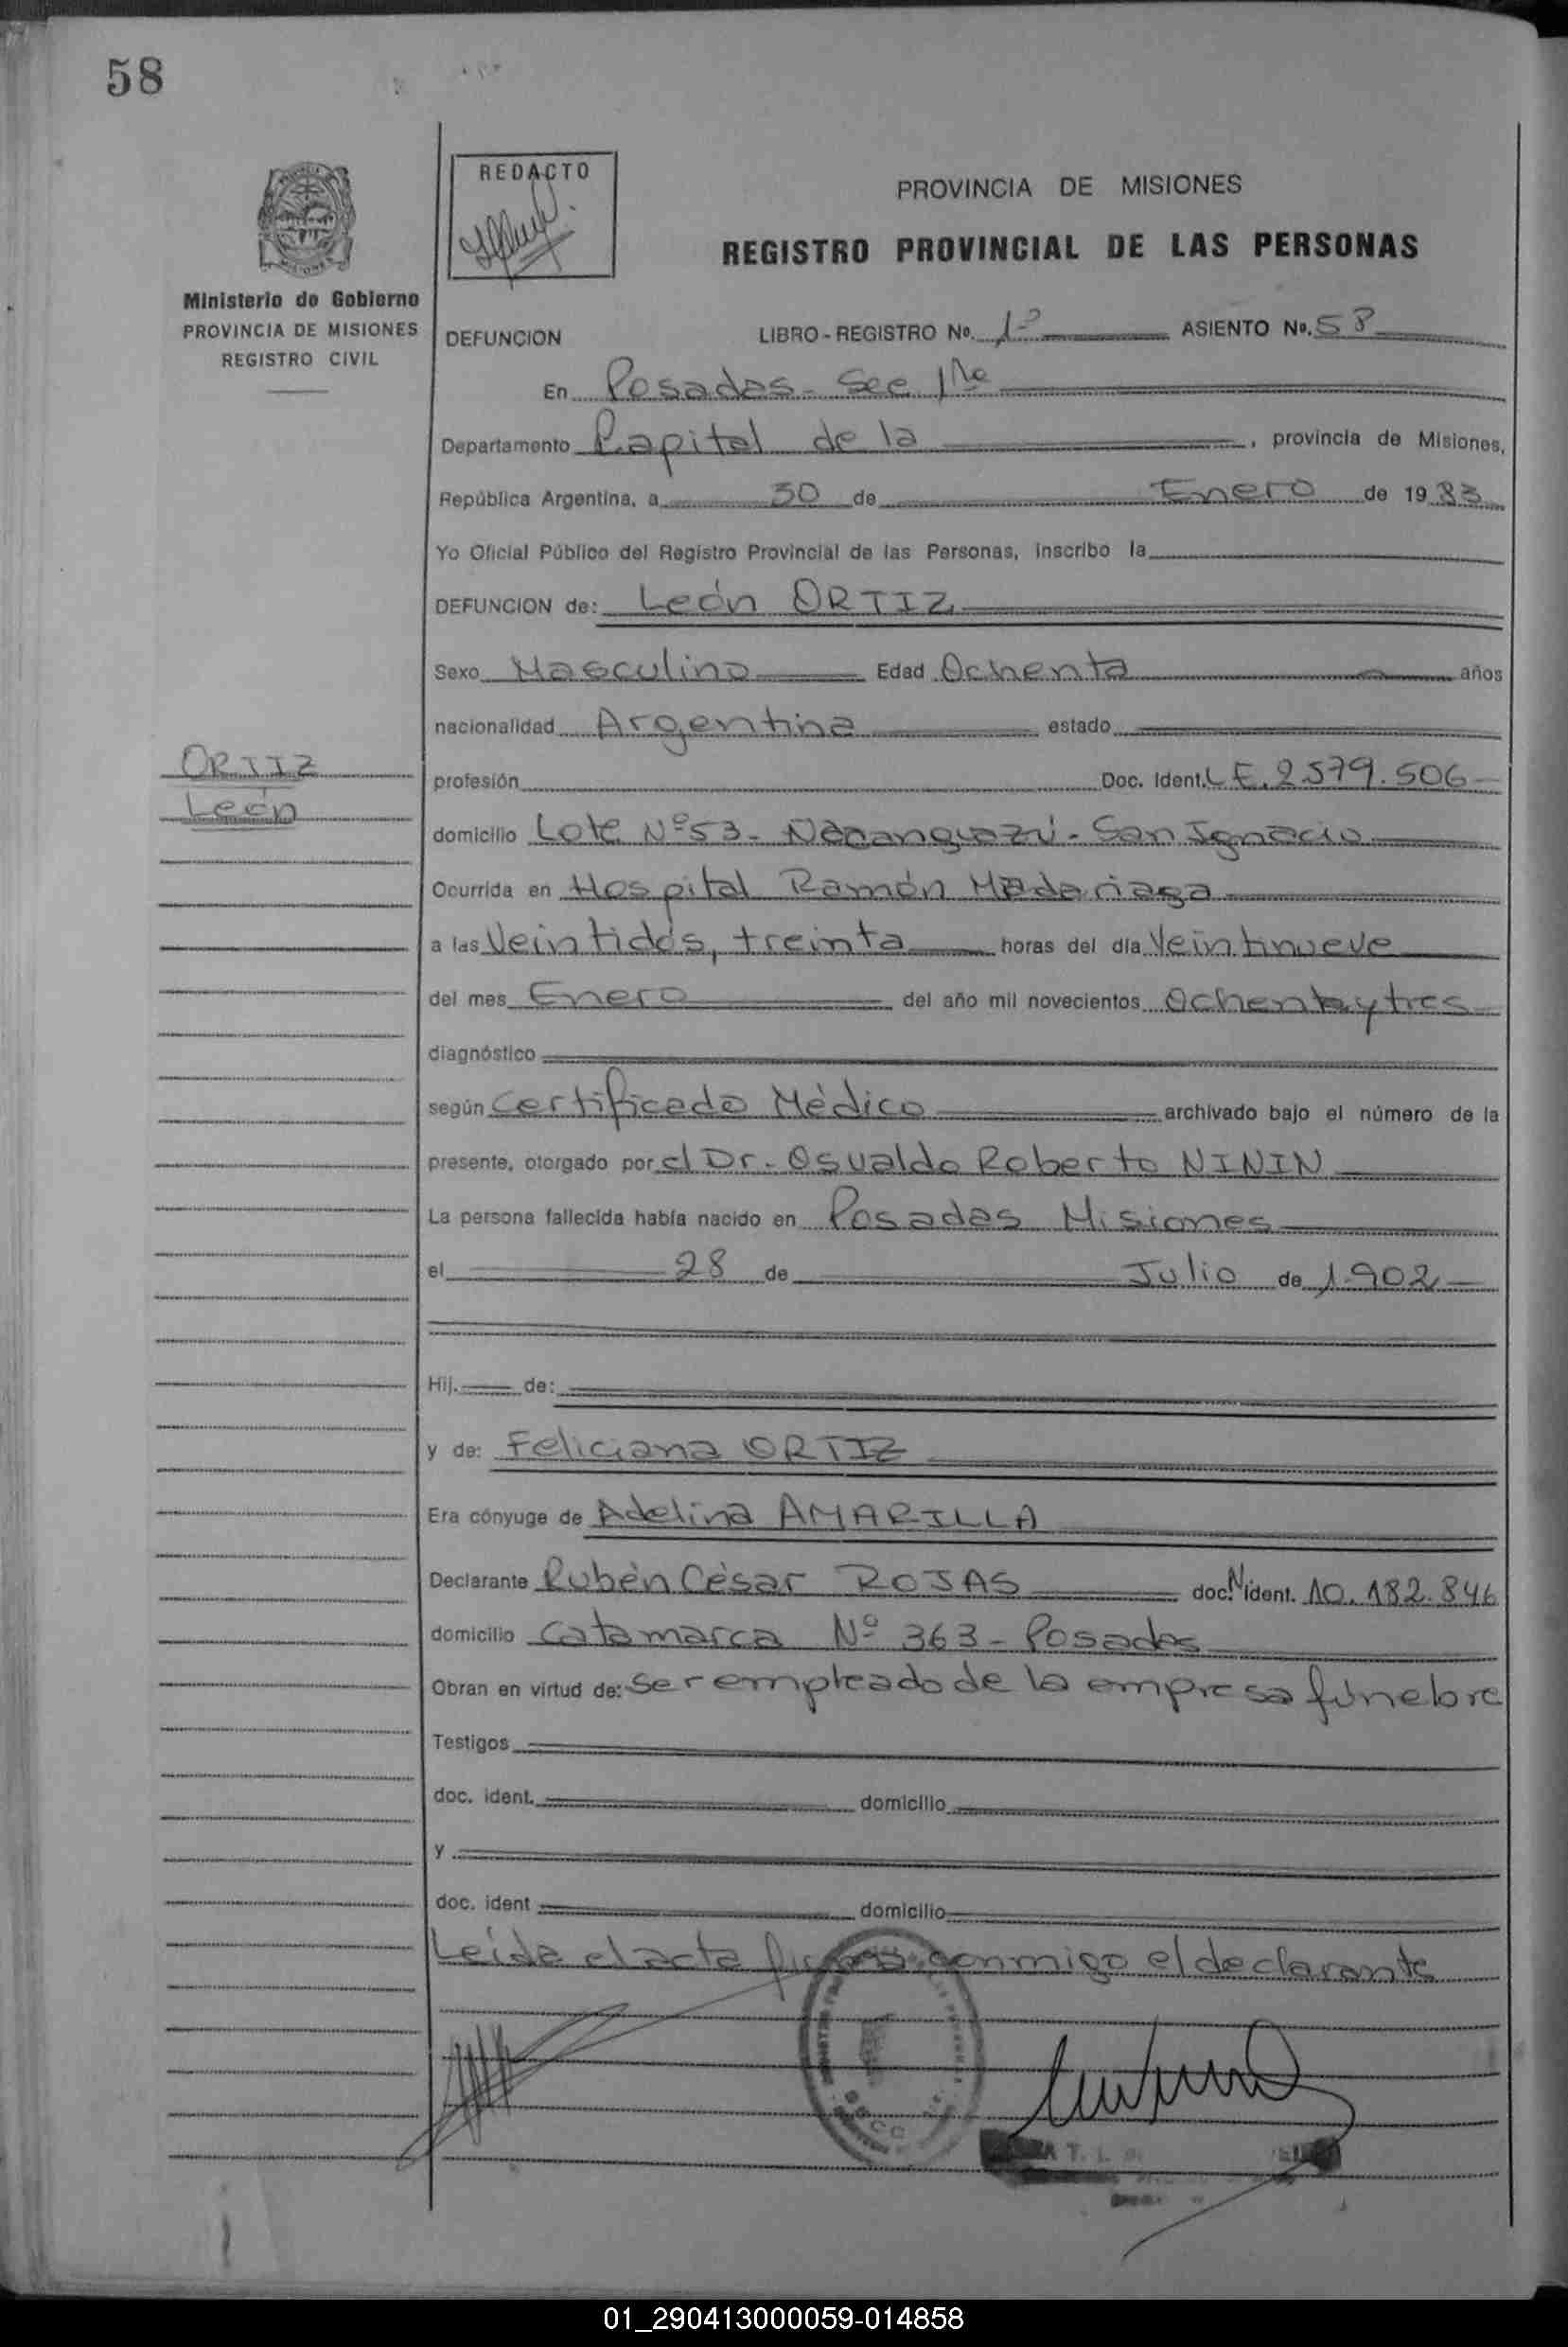 58
REDACTO
PROVINCIA DE MISIONES
REGISTRO PROVINCIAL DE LAS PERSONAS
Ministerio de Gobierno
PROVINCIA DE MISIONES
REGISTRO CIVIL
DEFUNCION LIBRO - REGISTRO No. 1º ASIENTO No. 58
En Posadas - Sec 1ra
Departamento Capital de la , provincia de Misiones,
República Argentina, a 30 de Enero de 1983
Yo Oficial Público del Registro Provincial de las Personas, inscribo la
DEFUNCION de: León ORTIZ
Sexo Masculino Edad Ochenta años
nacionalidad Argentina estado
ORTIZ
León
profesión Doc. Ident. L.E. 2.579.506
domicilio Lote Nº 53 - Ñacanguazú - San Ignacio
Ocurrida en Hospital Ramón Madariaga
a las Veintidós, treinta horas del día Veintinueve
del mes Enero del año mil novecientos Ochenta y tres
diagnóstico
según Certificado Médico archivado bajo el número de la
presente, otorgado por el Dr. Osvaldo Roberto NININ
La persona fallecida había nacido en Posadas Misiones
el 28 de Julio de 1.902
Hij. de:
y de: Feliciana ORTIZ
Era cónyuge de Adelina AMARILLA
Declarante Rubén César ROJAS doc. N ident. 10.182.846
domicilio Catamarca Nº 363 - Posadas
Obran en virtud de: ser empleado de la empresa fúnebre
Testigos
doc. ident. domicilio
y
doc. ident domicilio
Leída el acta firma conmigo el declarante
01_290413000059-014858